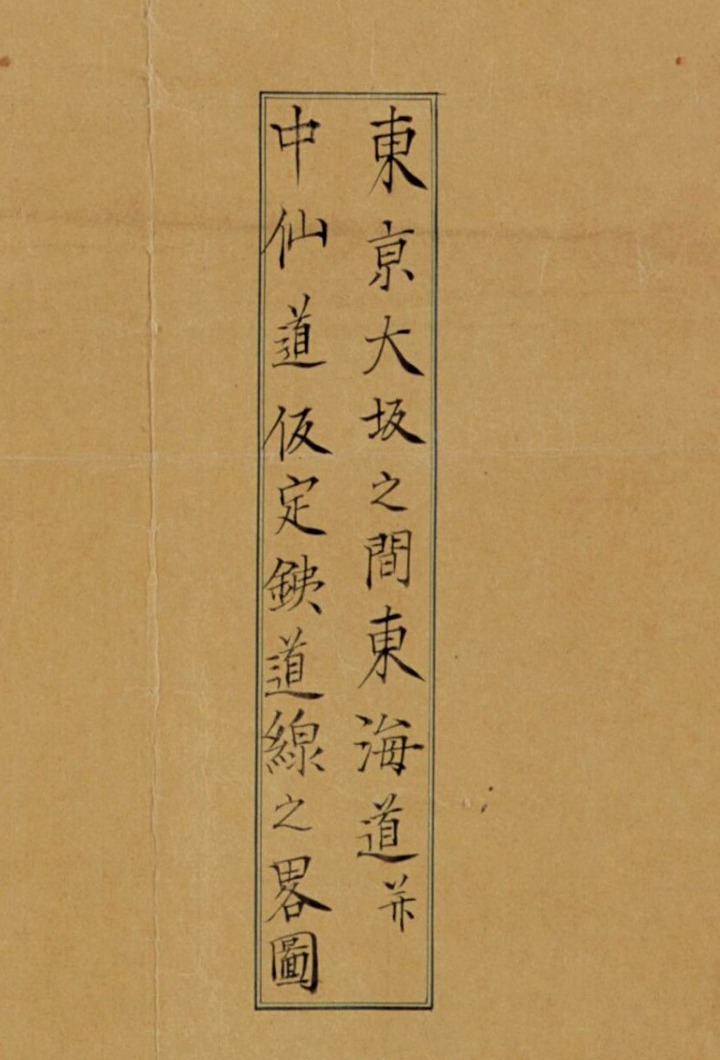 東亰大坂之間東海道并
中仙道仮定鉄道線之畧圖